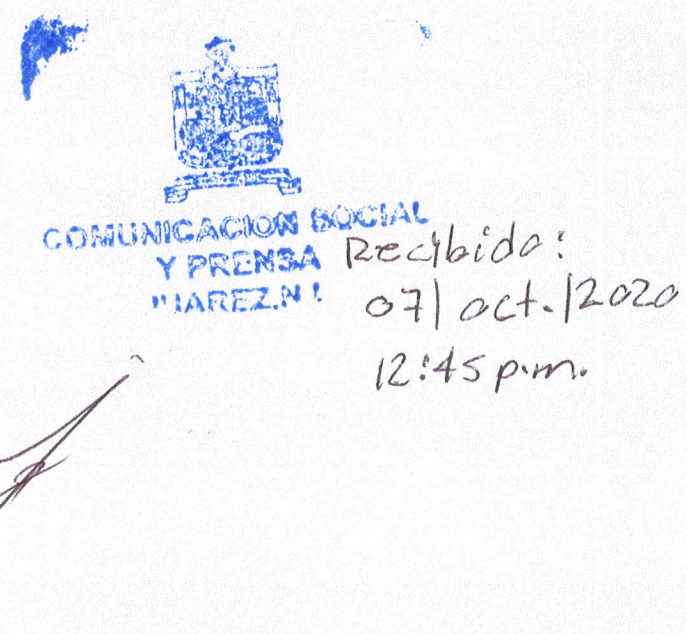 COMUNICACION SOCIAL
Y PRENSA
JUAREZ, N.L.
Recibido:
07/ oct./2020
12:45 p.m.